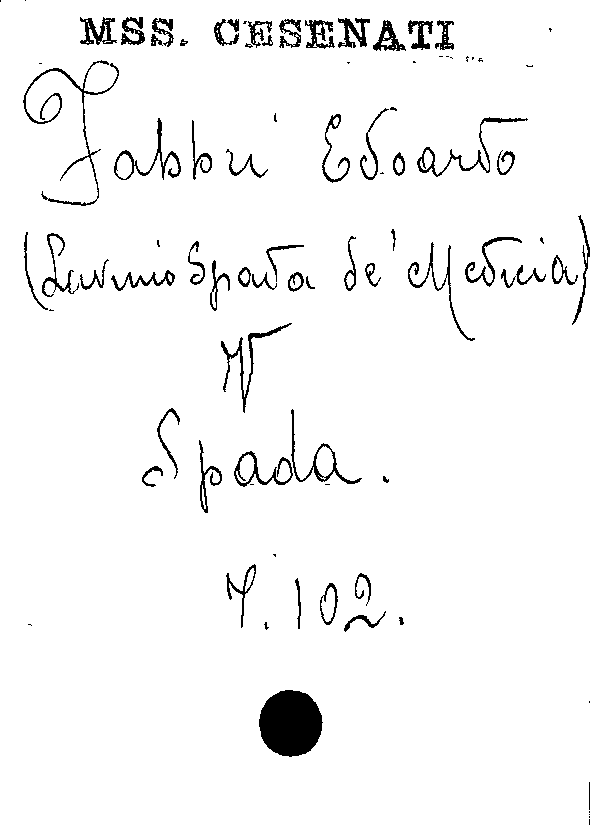 MSS. CESENATI
Fabbri Edoardo
(Lavinio Spada de' Medicia)
V
Spada.
7.102.